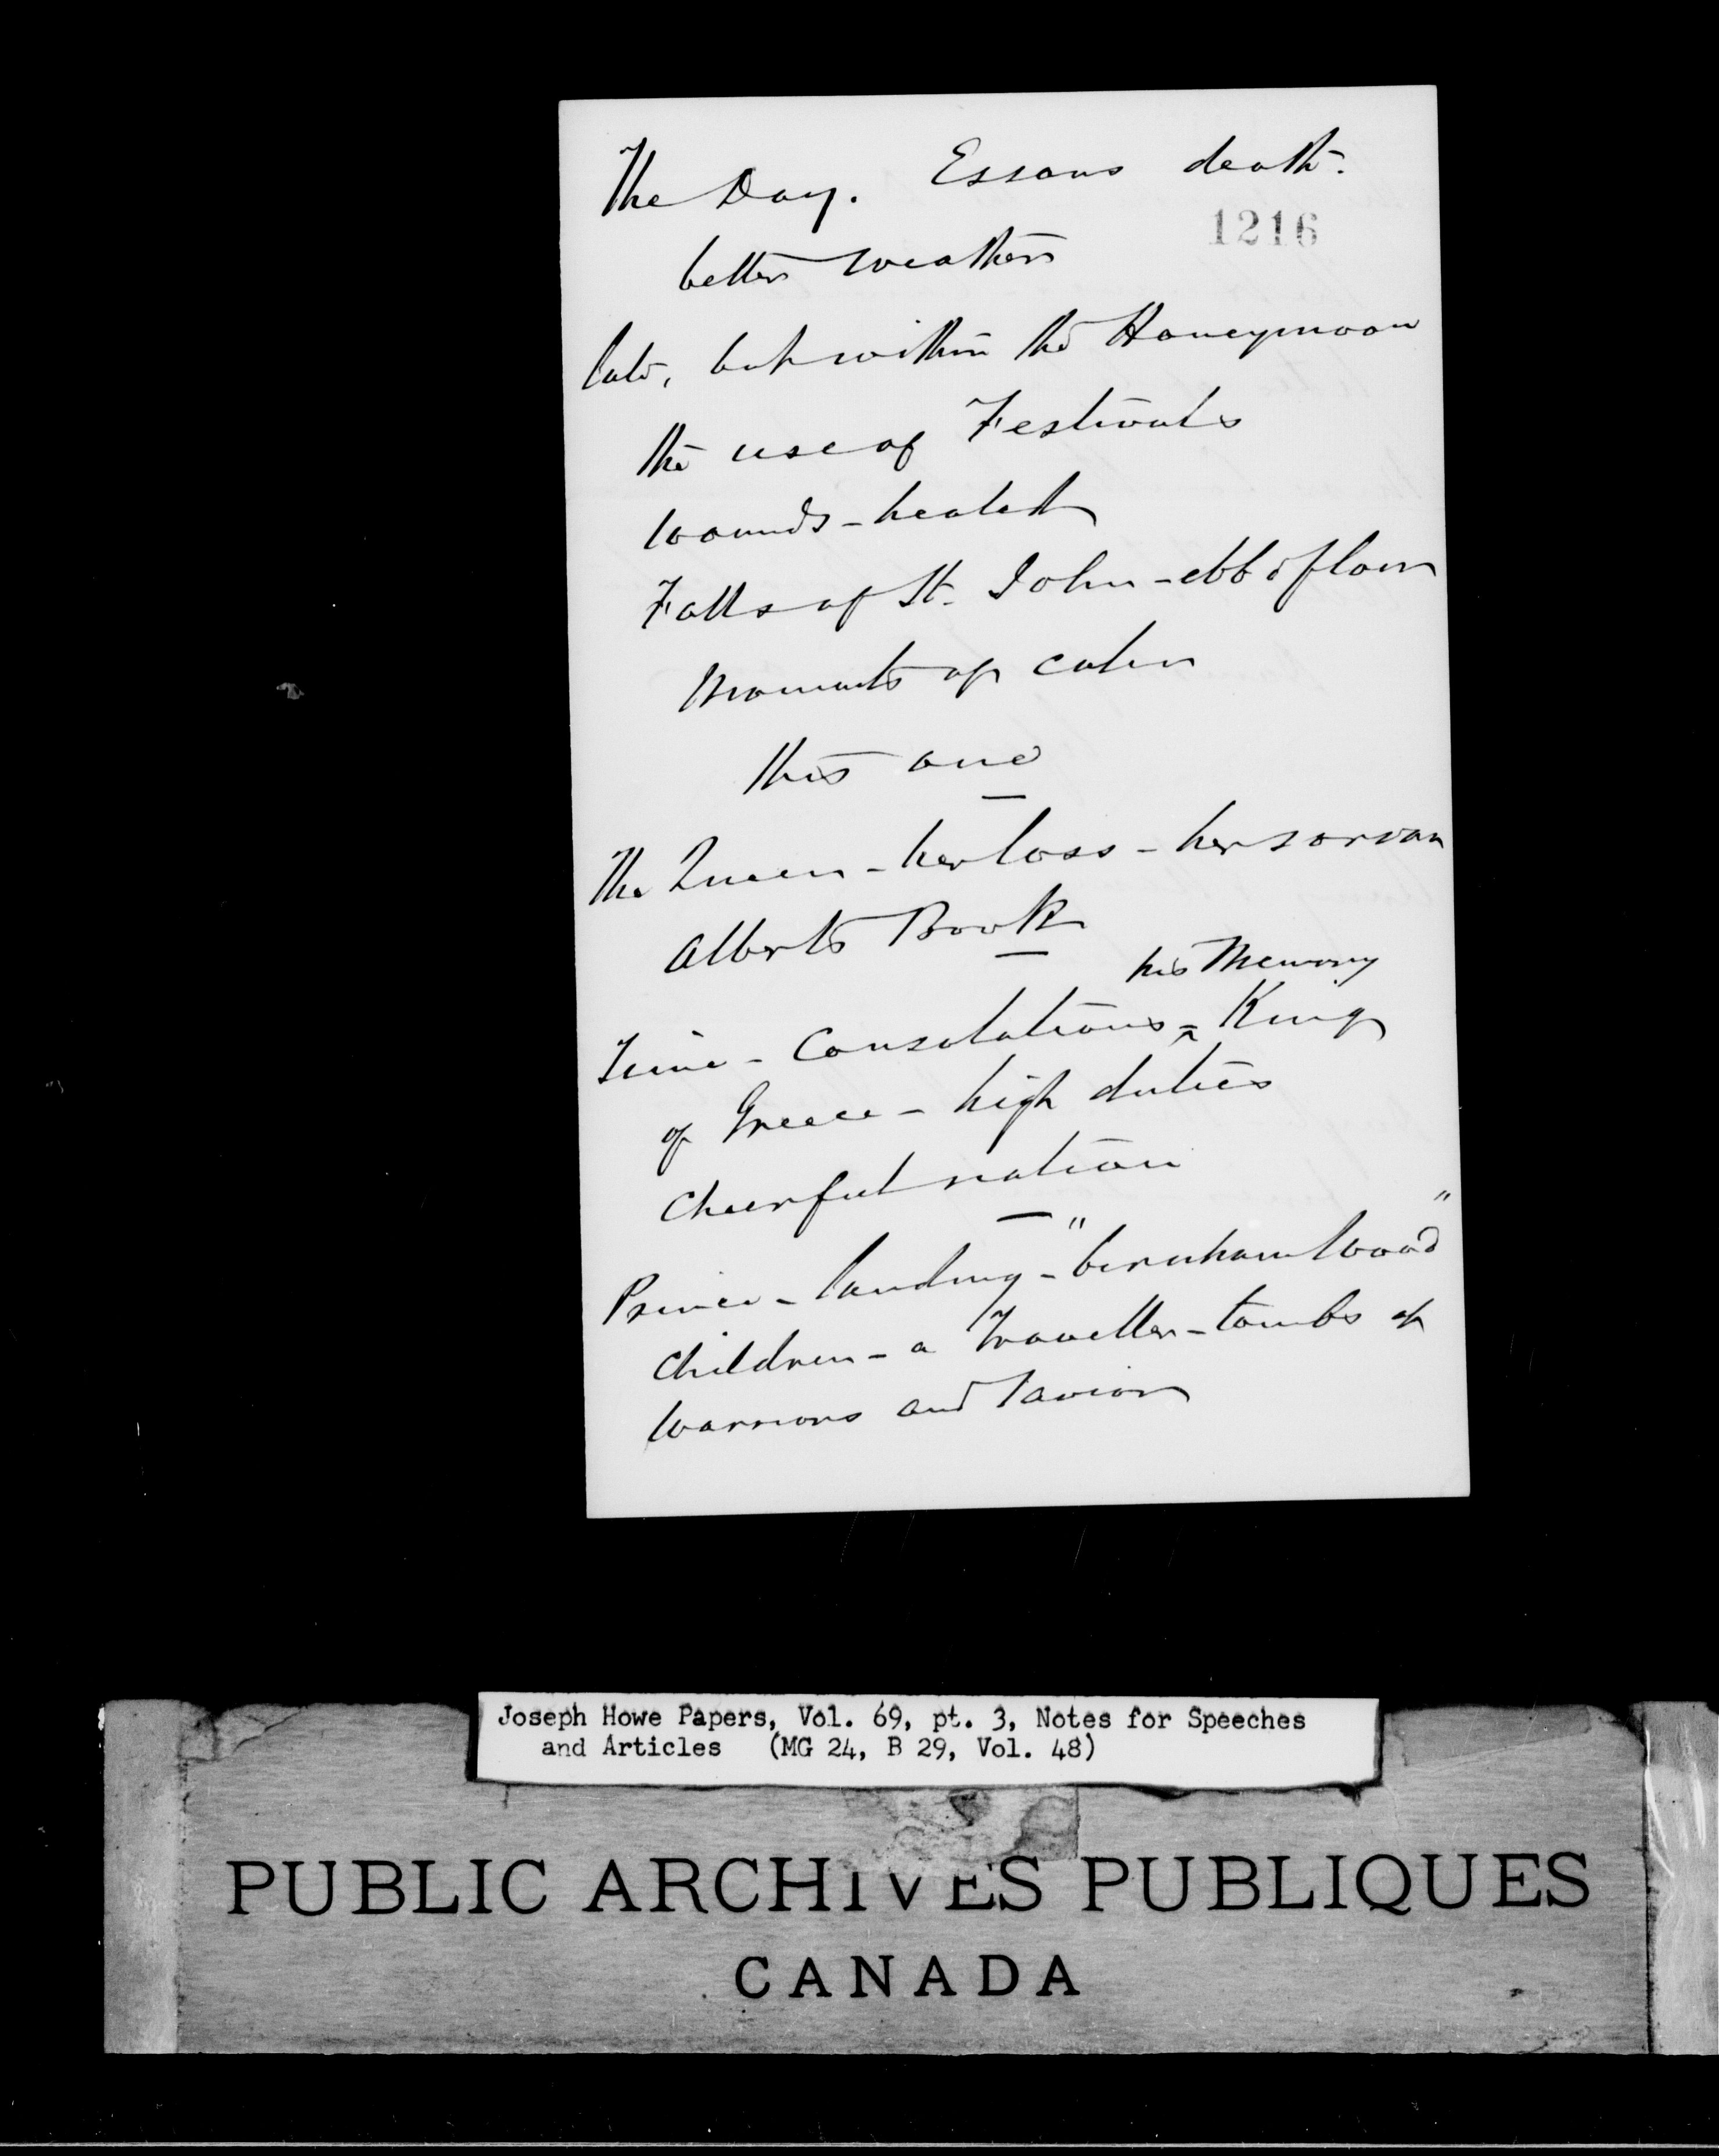 The Day. Essons death.
1216
better weather
late, but within the Honeymoon
the use of Festivals
wounds - healed
Falls of St. John - ebb & flow
moments of calm
this one
The Queen - her loss - her sorrow
Alberts Book
his Memory
Time - Consolations - King
of Greece - high duties
Cheerful nation
Prince - landing - "birnham wood"
Children - a Traveller - tombs of
warriors and
Joseph Howe Papers, Vol. 69, pt. 3, Notes for Speeches
and Articles (MG 24, B 29, Vol. 48)
PUBLIC ARCHIVES PUBLIQUES
CANADA